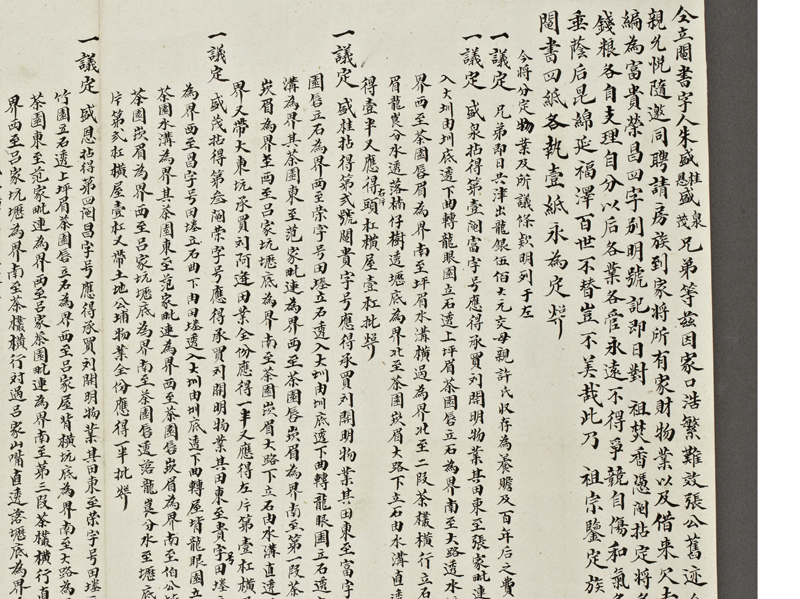 仝立鬮書字人朱盛桂恩盛泉茂兄弟等茲因家口浩繁難效張公舊迹
親允悅隨邀同聘請房族到家將所有家財物業以及借來欠
編為富貴榮昌四字別明號記即日對 祖焚香憑鬮拈定將
錢粮各自支理自分以后各業各管永遠不得爭競自傷和氣
垂蔭后昆綿延福澤百世不替豈不美哉此乃 祖宗鑒定族
鬮書四紙各執壹紙永為定炤
今將分定物業及所議條欵明列于左
一議定 兄弟即日共津出龍銀伍佰大元交母親許氏收存為養贍及百年后之費
一議定 盛泉拈得第壹鬮富字号應得承買列開明物業其田東至張家毗連
入大圳由圳底透下曲轉龍眼園立石透上坪眉茶園唇立石為界南至大路透水
界西至茶園唇眉為界南至坪眉水溝橫過為界北至二段茶欉橫行立石
眉龍崀分水透落楠仔樹透壢底為界北至茶園崁眉大路下立石由水溝直透
得壹半又應得右片頭杠橫屋壹杠批炤
一議定 盛桂拈得第弍號鬮貴字号應得承買列開明物業其田東至富字
園唇立石為界西至崇字号田塍立石透入大圳由圳底透下曲轉龍眼園立石透
溝為界其茶園東至范家毗連為界西至茶園唇崁眉為界南至第一段茶
崁眉為界西至呂家坑壢底為界南至茶園崁眉大路下立石由水溝直透
界又帶大東坑承買列阿逢田業全份應得一半又應得左片第壹杠橫
一議定 盛茂拈得第叁鬮榮字号應得承買列開明物業其田東至貴字号田塍
為界西至昌字号田塍立石由下由田塍透入大圳由圳底透下曲轉屋背龍眼園立
茶園水溝為界其茶園東至范家毗連為界西至茶園唇崁眉為界南至伯公
茶園崁眉為界西至呂家坑壢底為界南至茶園唇透落龍崀分水至壢底
片第弍杠橫屋壹杠又帶土地公埔物業全份應得一半批炤
一議定 盛恩拈得第四鬮昌字号應得承買列開明物業其田東至崇字号田塍
竹園立石透上坪眉茶園唇立石為界西至呂家屋背橫坑底為界南至大路為
茶園東至范家毗連為界西至呂家茶園毗連為界南至第三段茶欉橫行直
界西至呂家坑壢為界南至茶欉橫行対過呂家山嘴直透落壢底為界